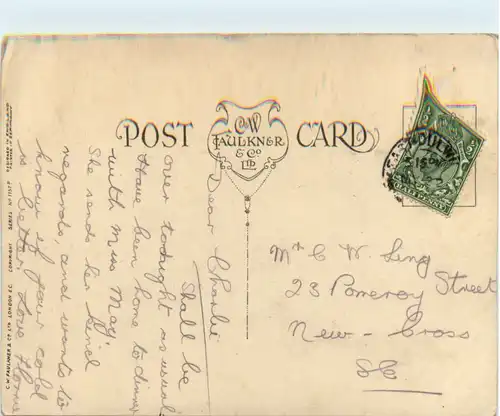 POST CARD
C.W.
FAULKNER
& Co
LTD
Dear Charlie
Shall be
over tonight as usual
Have been home to dinner
with Miss May.
She sends her kind
regards, and wants to
know if your cold
is better. Love
Mr C W
23 Pomeroy Street
New-Cross
SE
C.W. FAULKNER & CO. LTD. LONDON E.C. COPYRIGHT SERIES NO
HALFPENNY